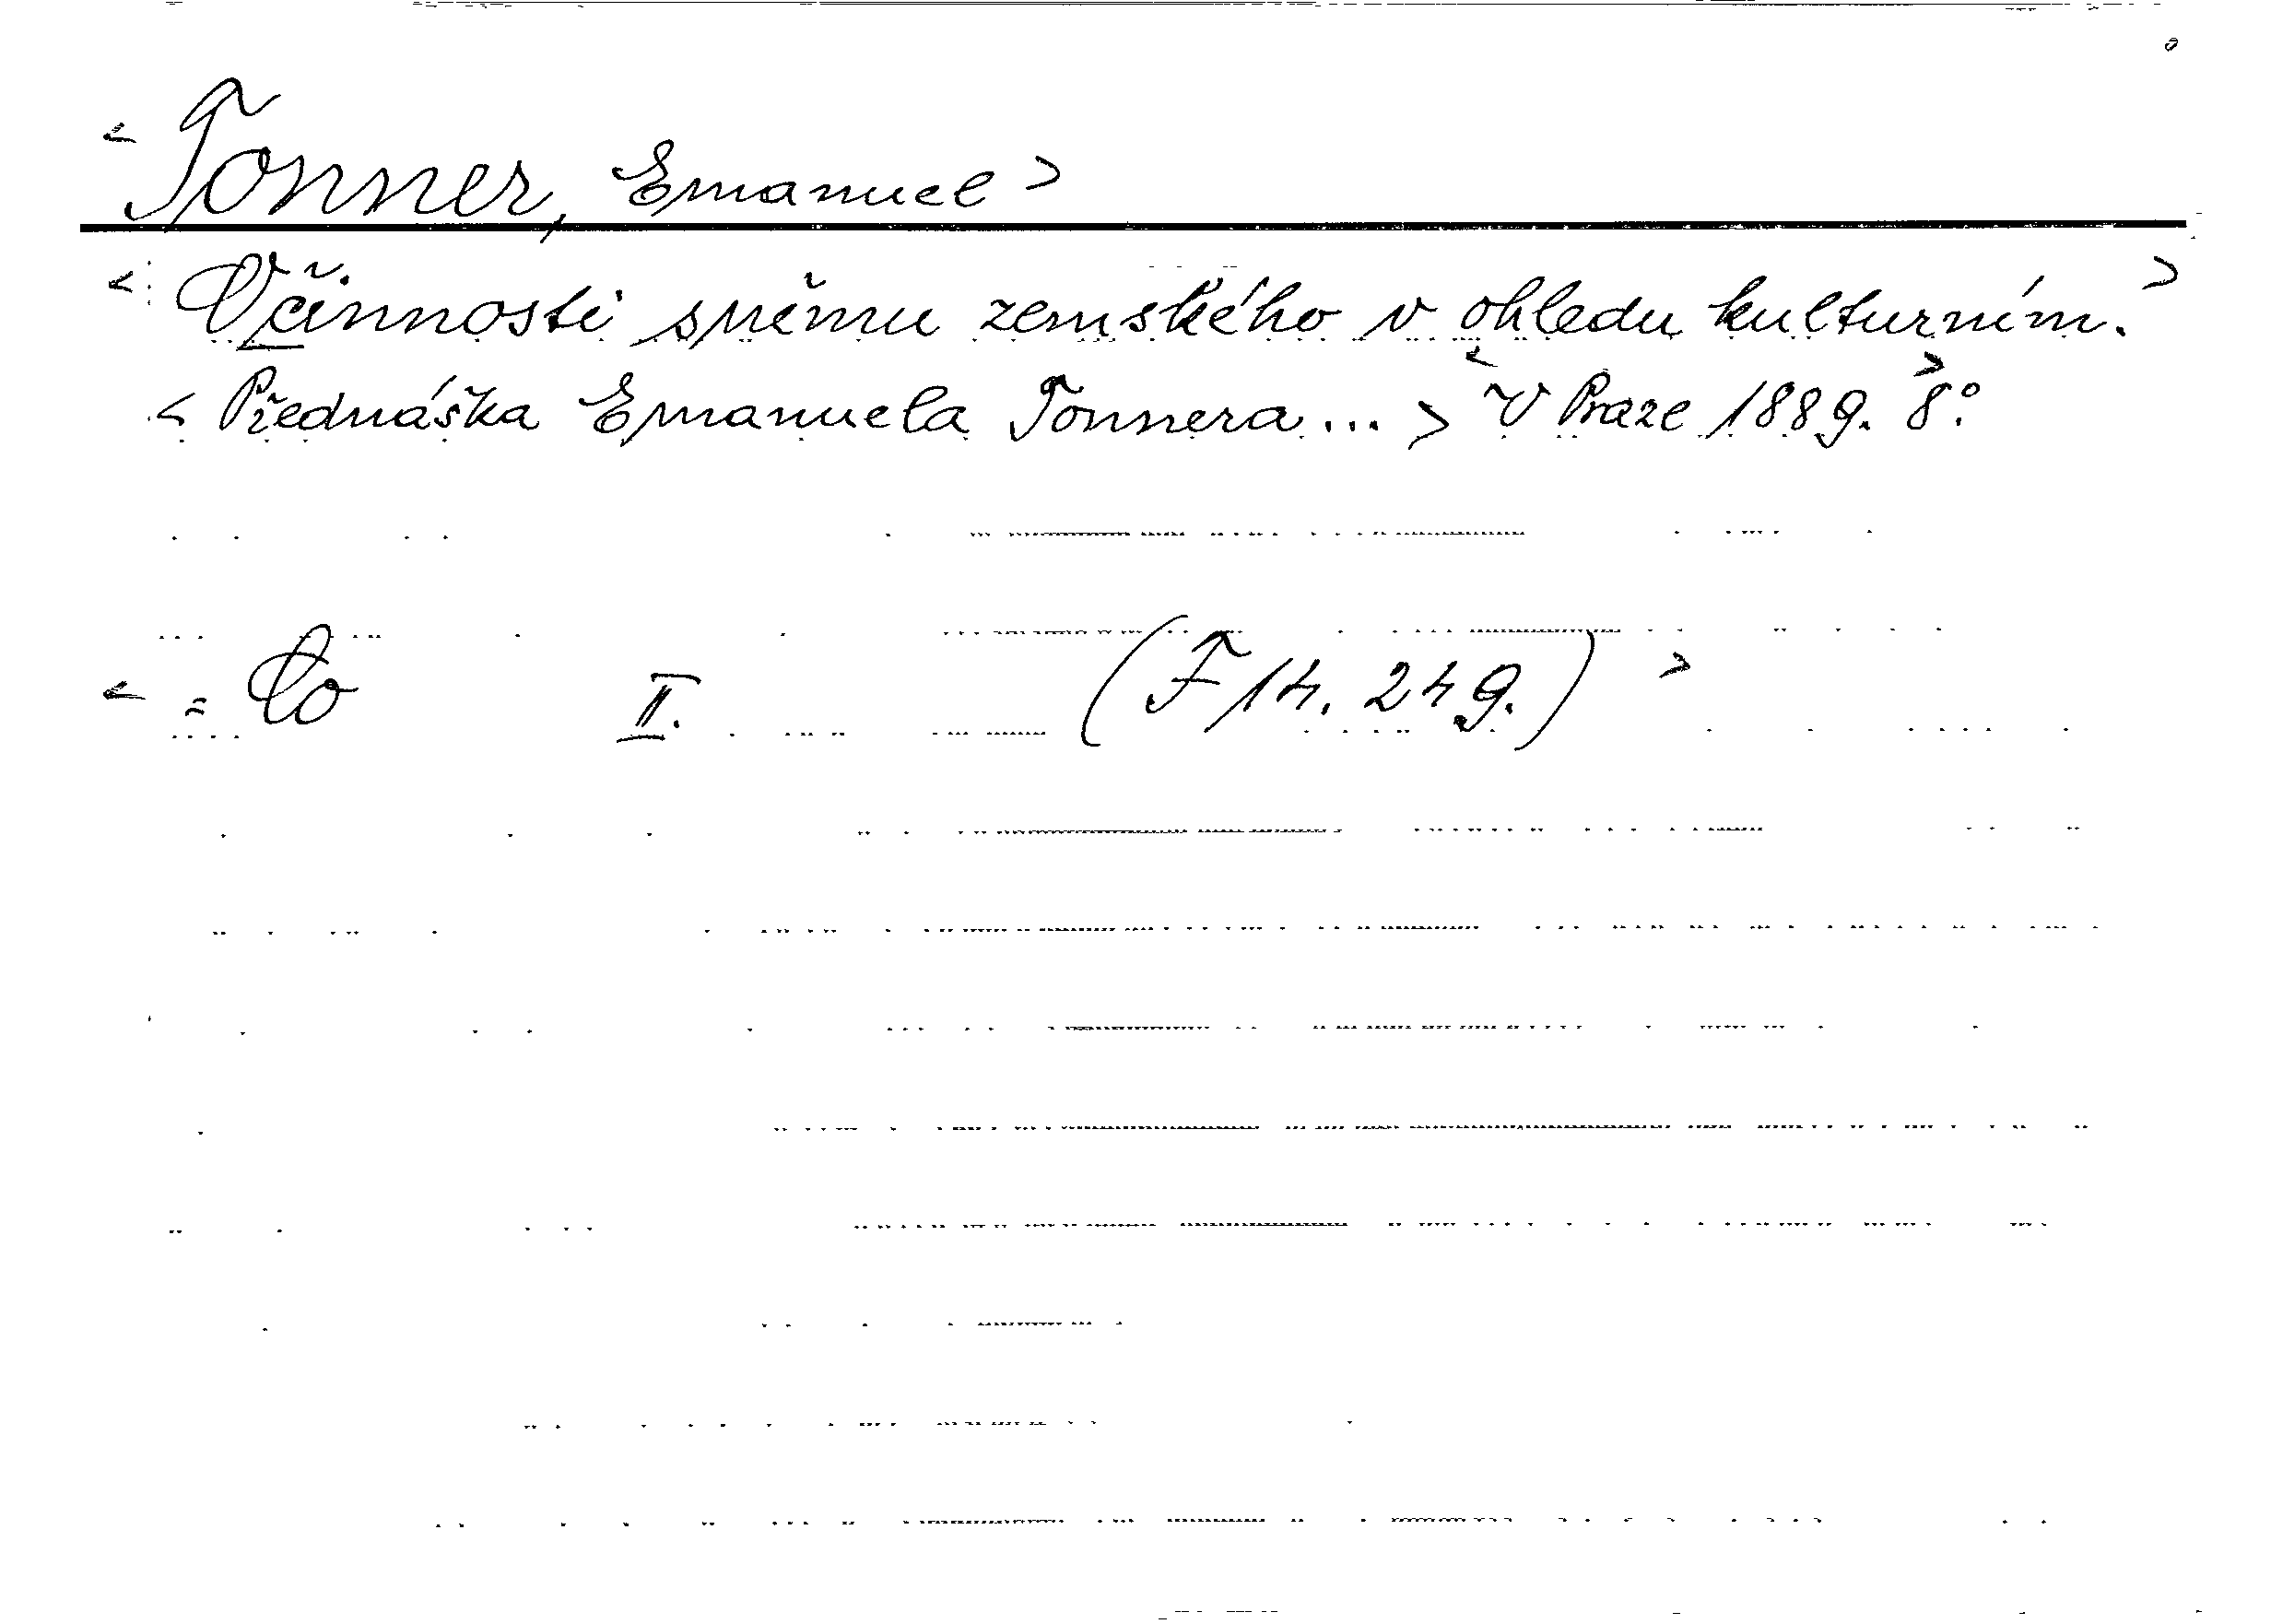 < Tonner, Emanuel >
< O činnosti sněmu zemského v ohledu kulturním. >
< Přednáška Emanuela Tonnera... > < V Praze 1889. 8°. >
< = Co II. (F 14. 249.) >